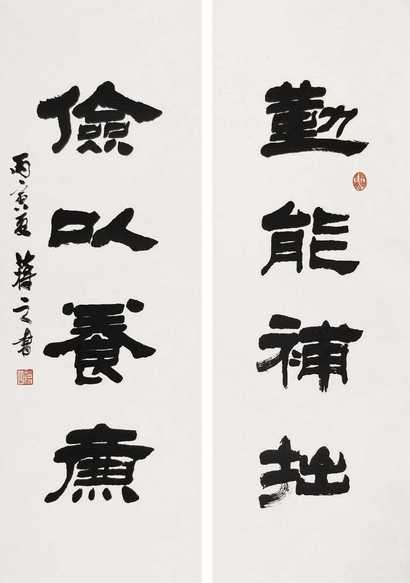 勤能補拙
儉以養廉
丙寅夏 之書